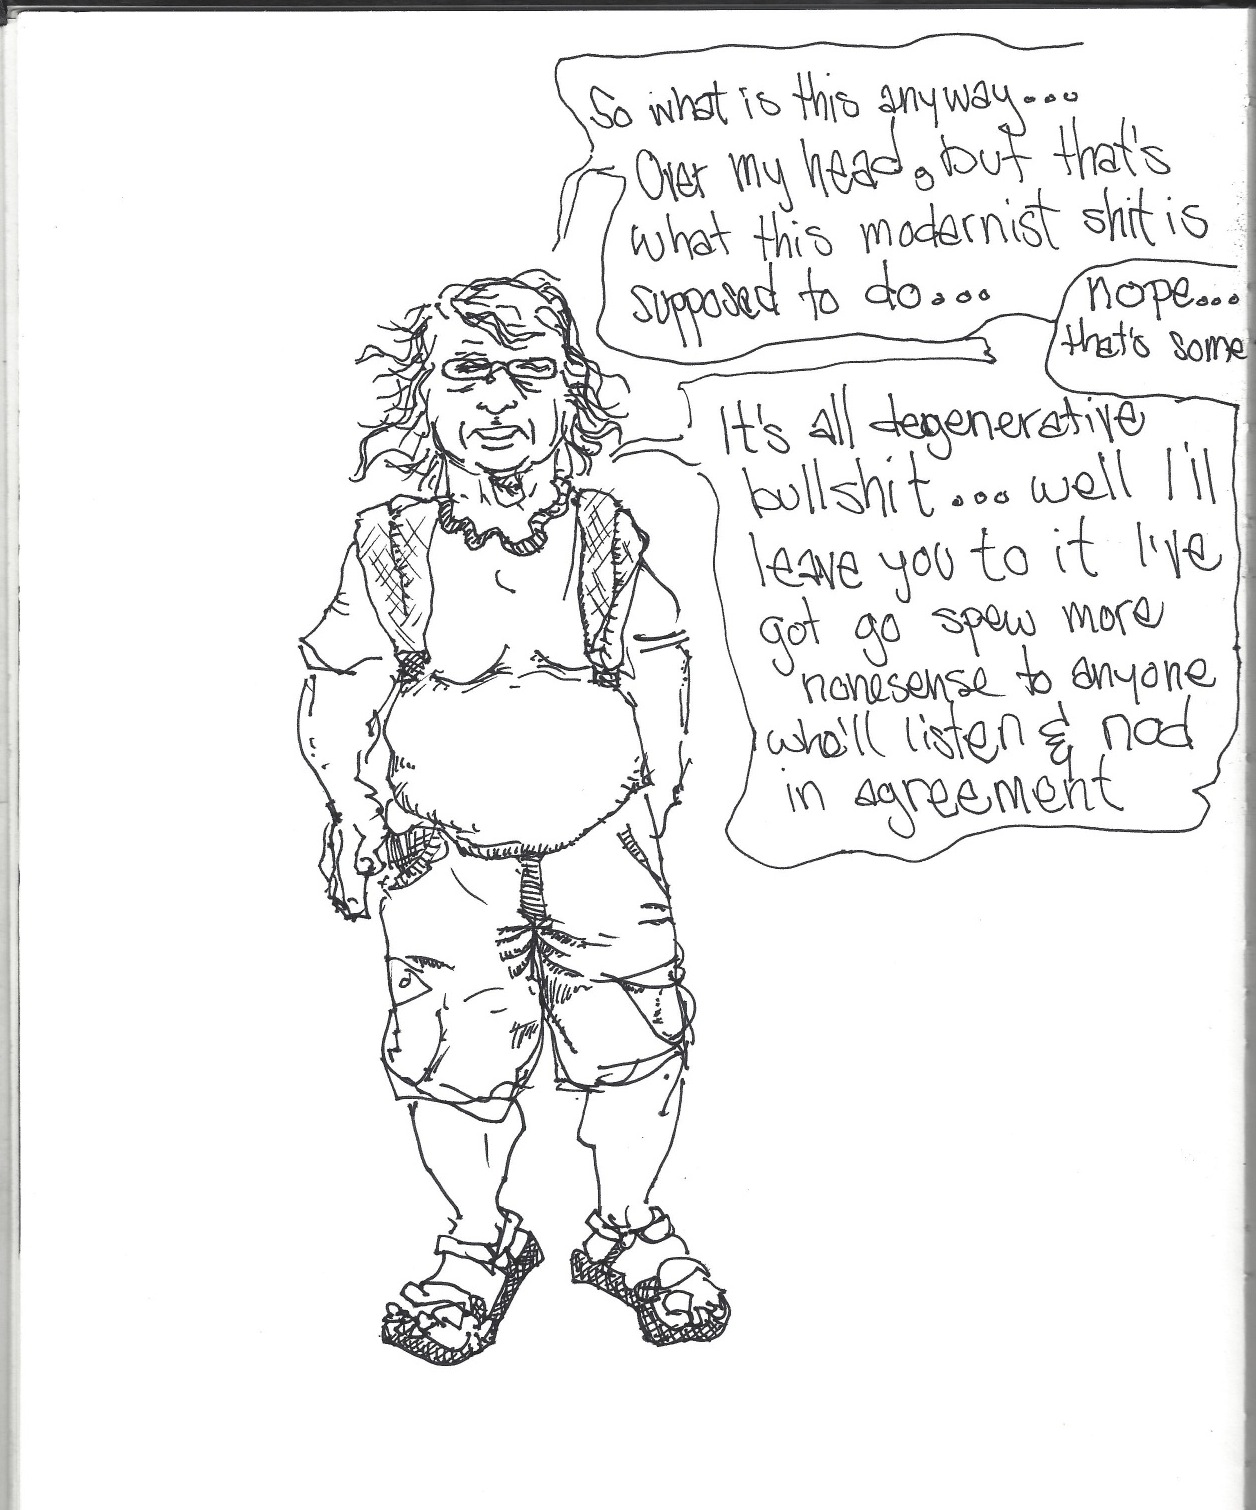 So what is this anyway...
Over my head. but that's
what this modernist shit is
supposed to do...
nope...
that's some
It's all degenerative
bullshit... well I'll
leave you to it I've
got go spew more
nonesense to anyone
who'll listen & nod
in agreement